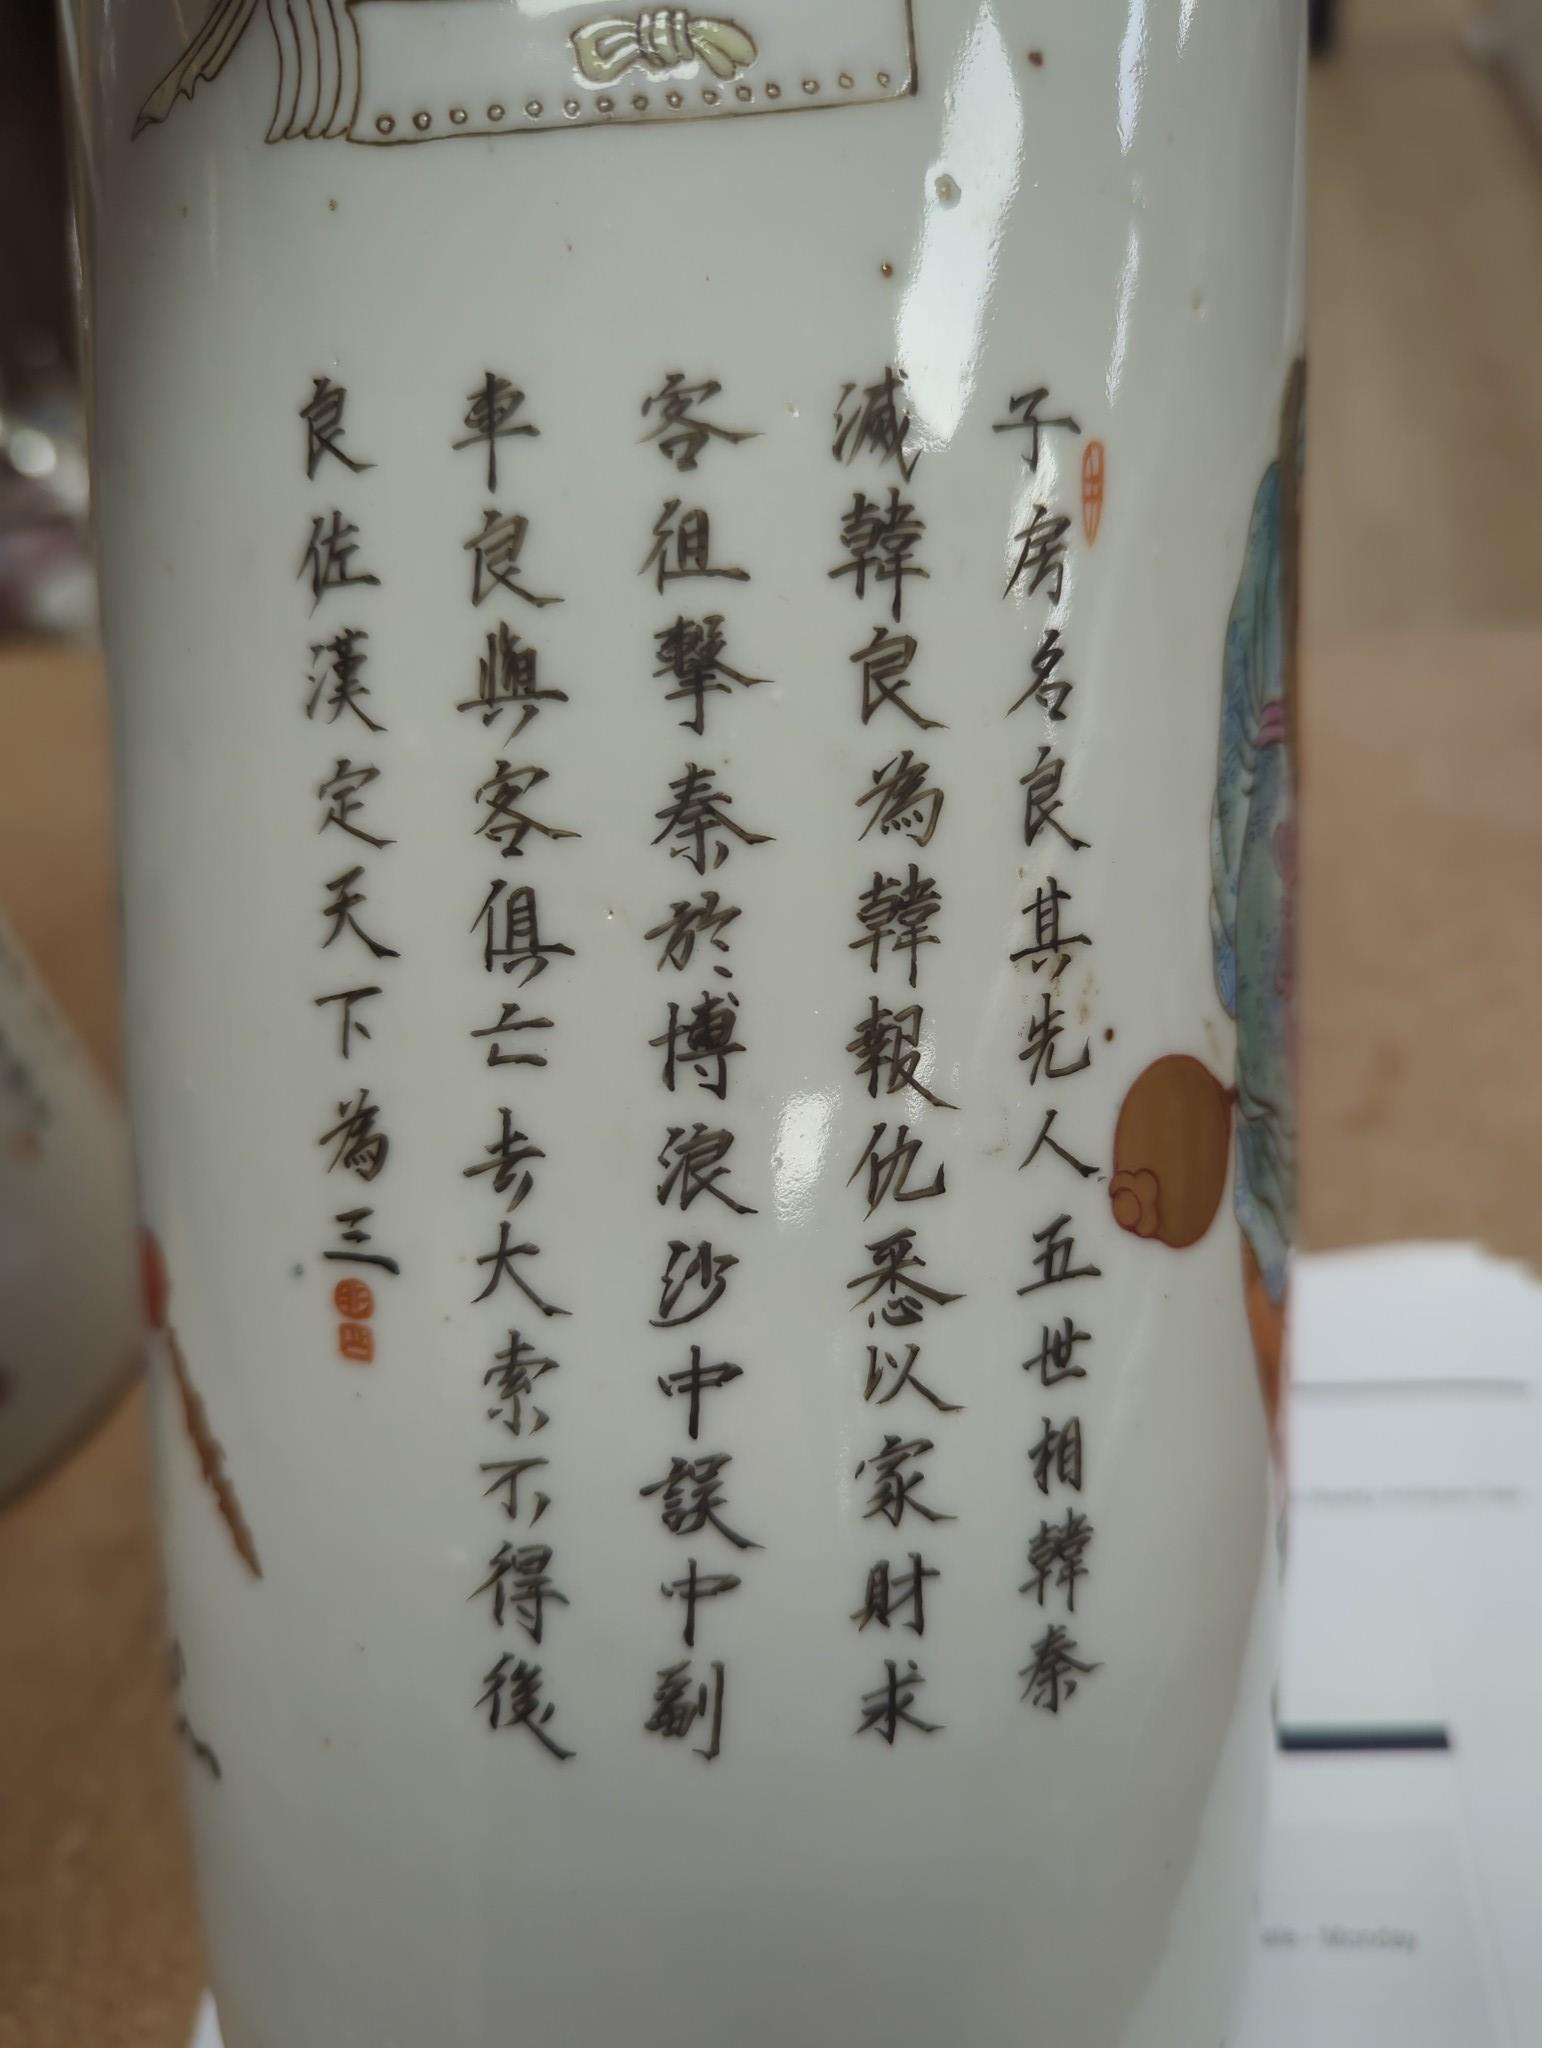 子房名良其先人五世相韓秦
滅韓良為韓報仇悉以家財求
客徂擊秦於博浪沙中誤中副
車良與客俱亡去大索不得後
良佐漢定天下為三
- Monday